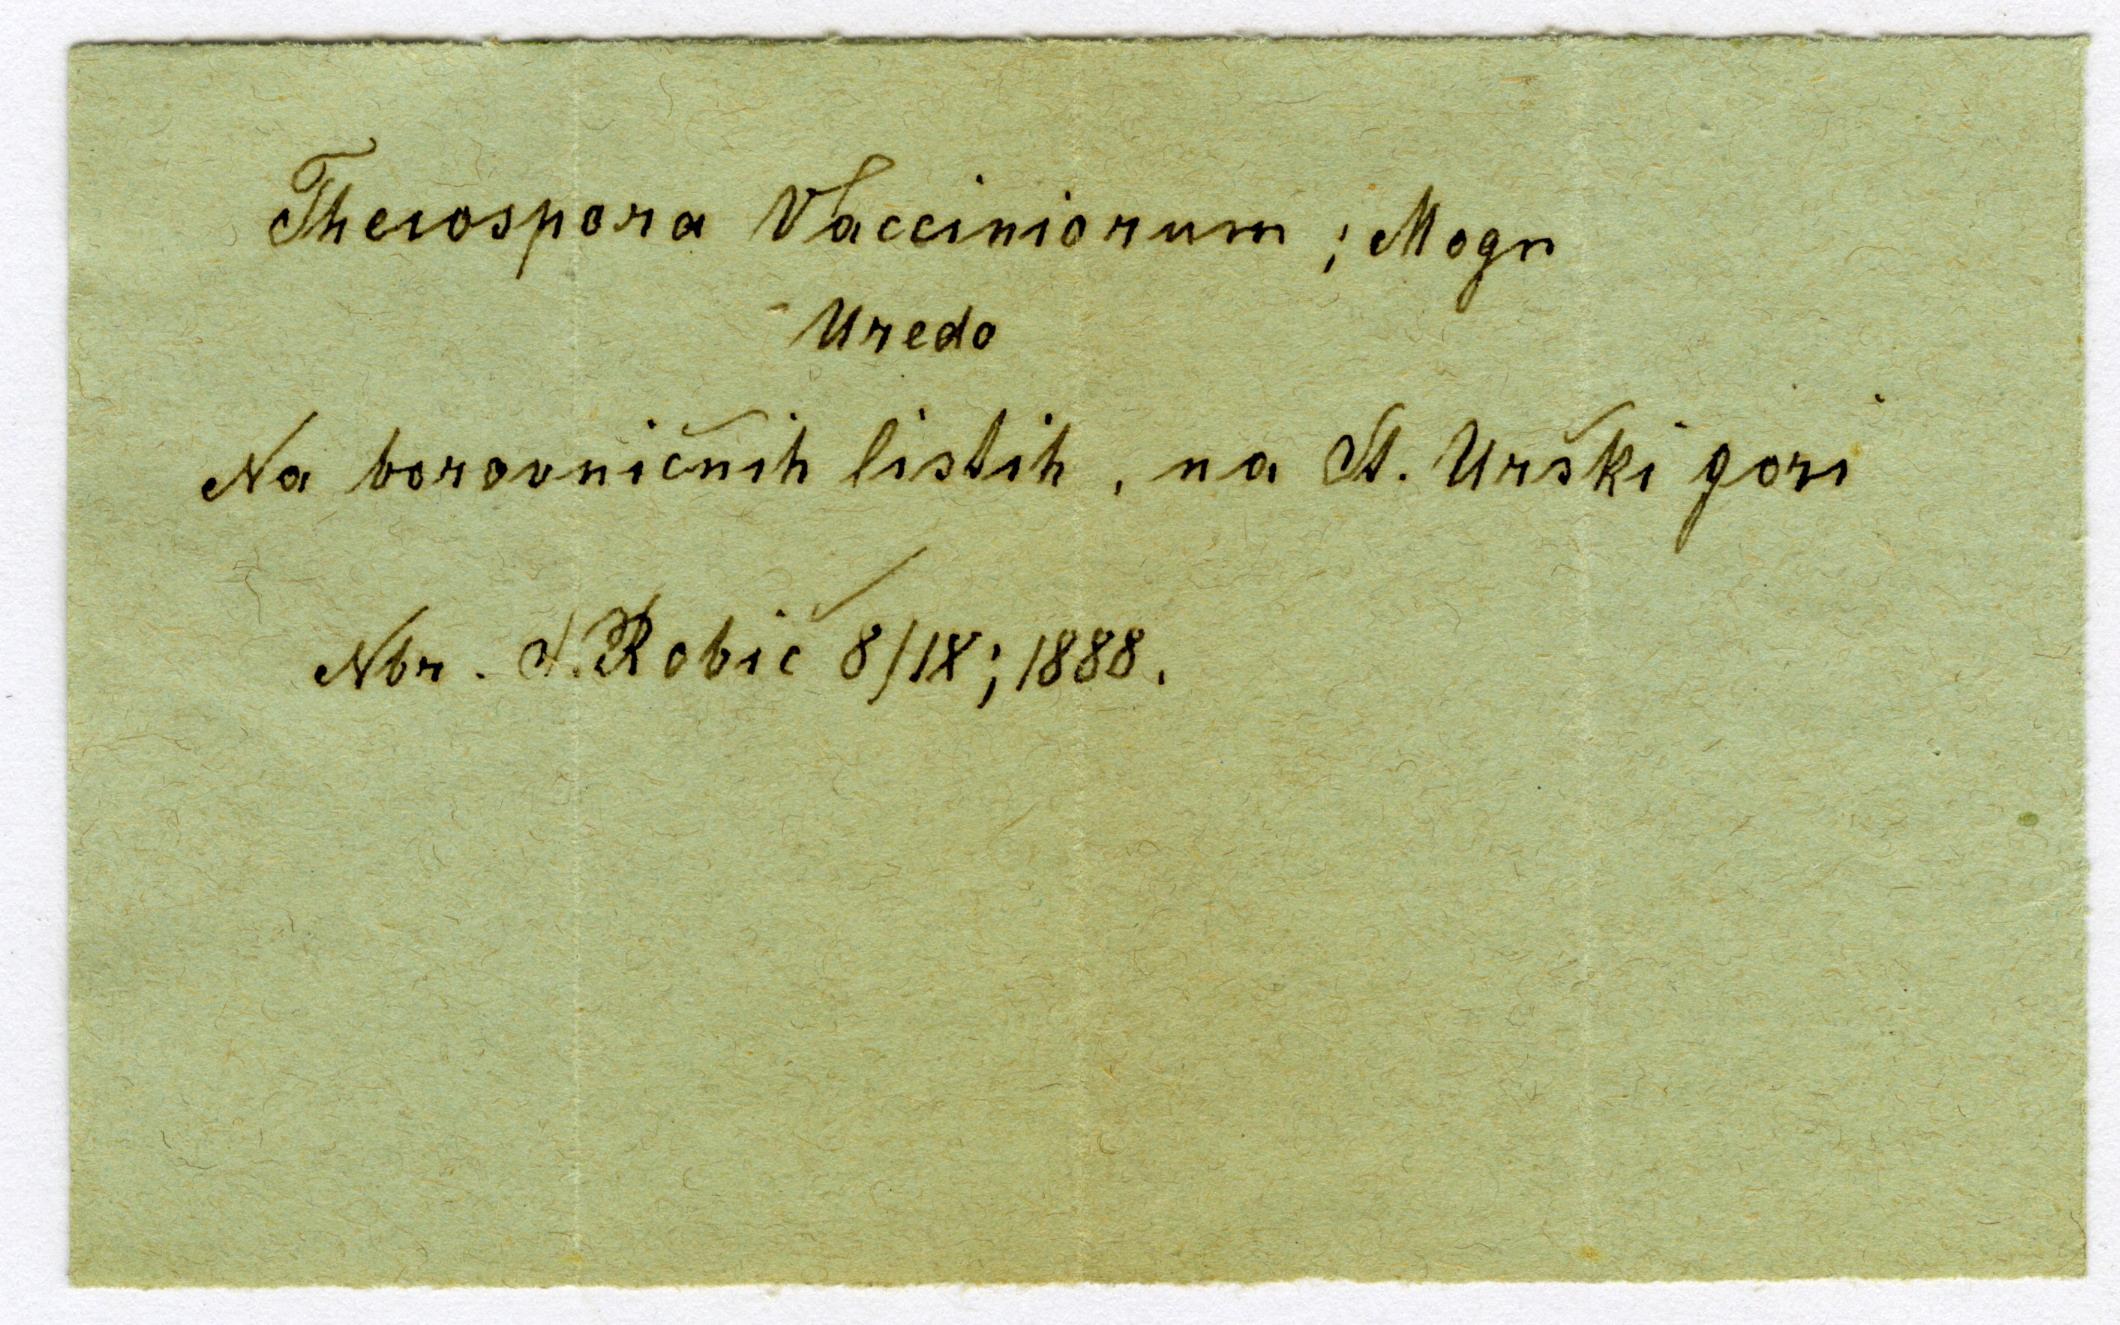 Theiospora Vacciniorum ; Mogn
Uredo
Na borovničnih listih, na St. Urški gori
Nbr. S. Robič 8/IX; 1888.